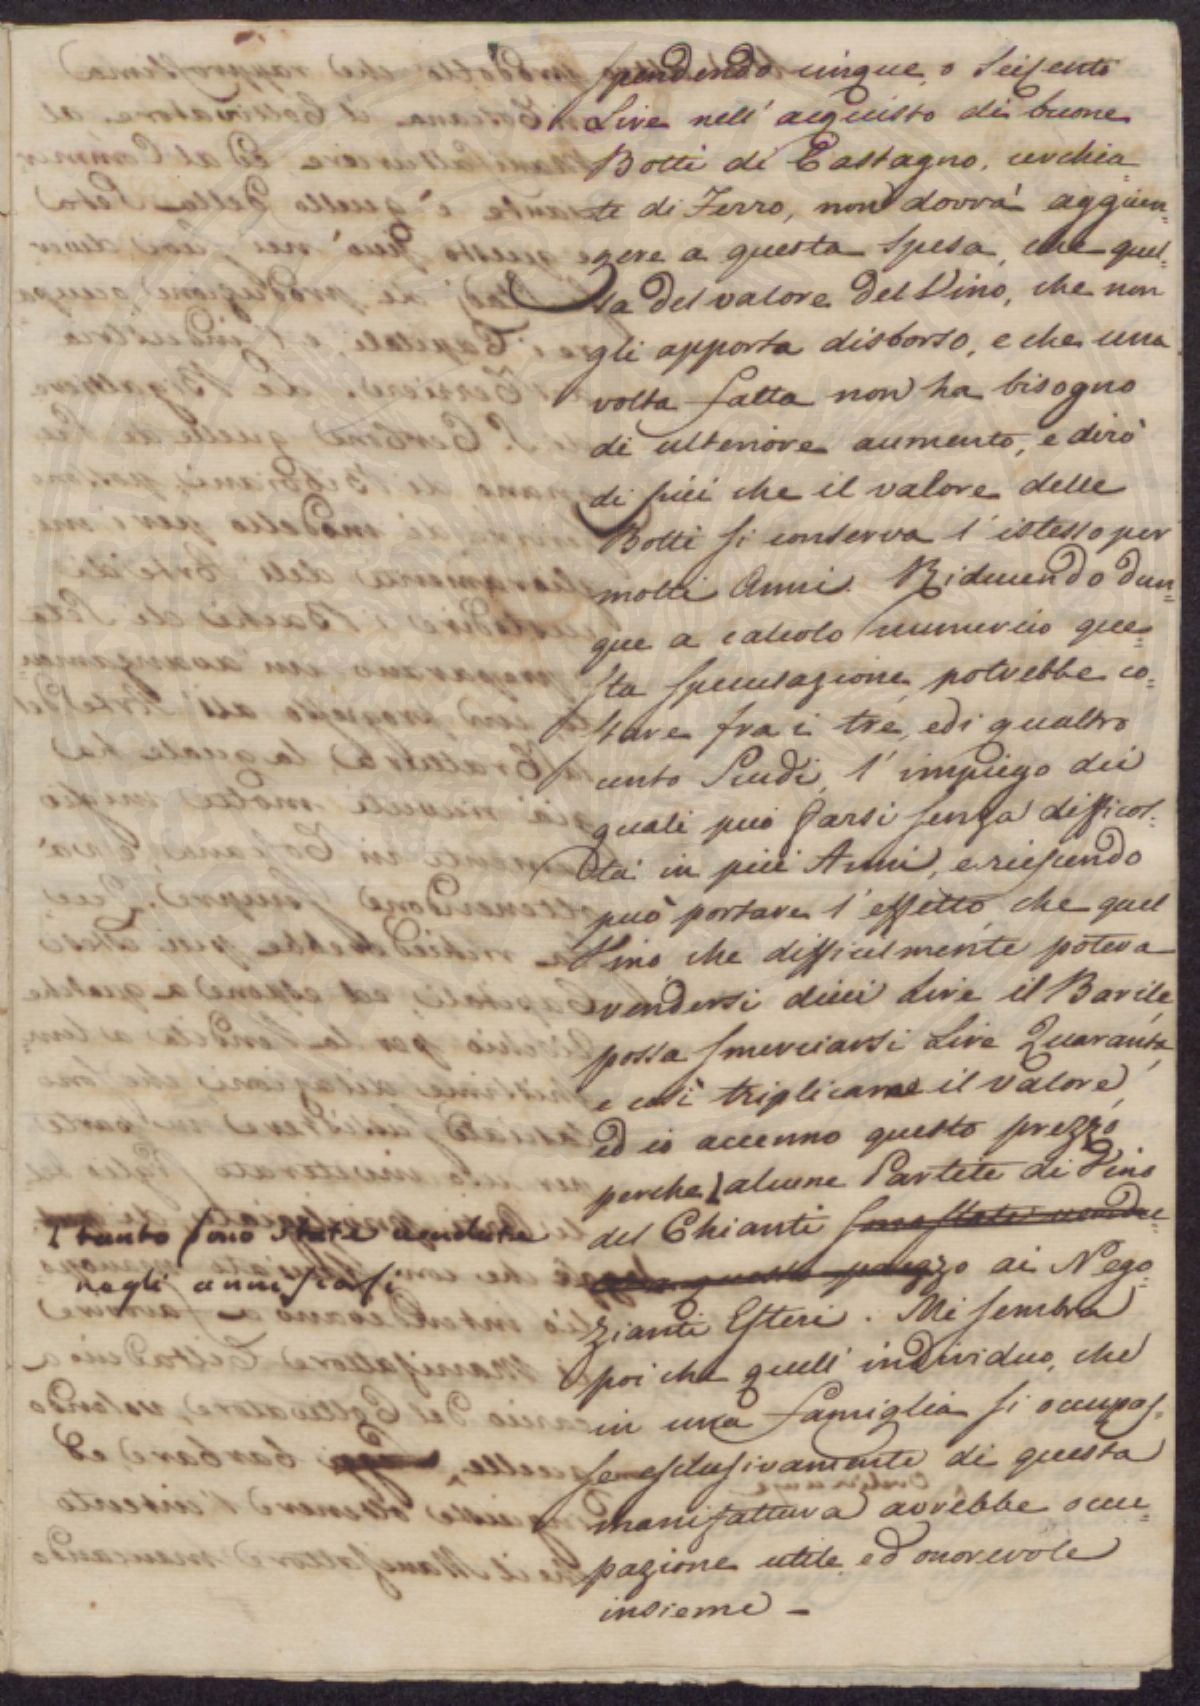 spendendo cinque, o Seicento
Lire nell' acquisto di buone
Botti di Castagno, cerchia-
te di Ferro, non dovrà aggiun-
gere a questa spesa, che quel-
la del valore del Vino, che non
gli apporta disborso, e che una
volta fatta non ha bisogno
di ulteriore aumento, e dirò
di più che il valore delle
Botti si conserva l' istesso per
molti Anni. Riducendo dun-
que a calcolo numerico que-
sta speculazione, potrebbe co-
stare fra i tre, ed i quattro
cento Scudi, l' impiego dei
quali può farsi senza difficol-
tà in più Anni, e riescendo
può portare l' effetto, che quel
Vino che difficilmente poteva
vendersi dieci Lire il Barile,
possa smerciarsi Lire Quaranta,
e così triplicarne il valore,
ed io accenno questo prezzo
perche alcune Partite di Vino
del Chianti sono state vendu-
te a questo prezzo ai Nego-
zianti Esteri. Mi sembra
poi che quell' individuo, che
in una famiglia si occupas-
se esclusivamente di questa
manifattura avrebbe occu-
pazione utile, ed onorevole
insieme -
tanto sono state vendute
negli anni scarsi